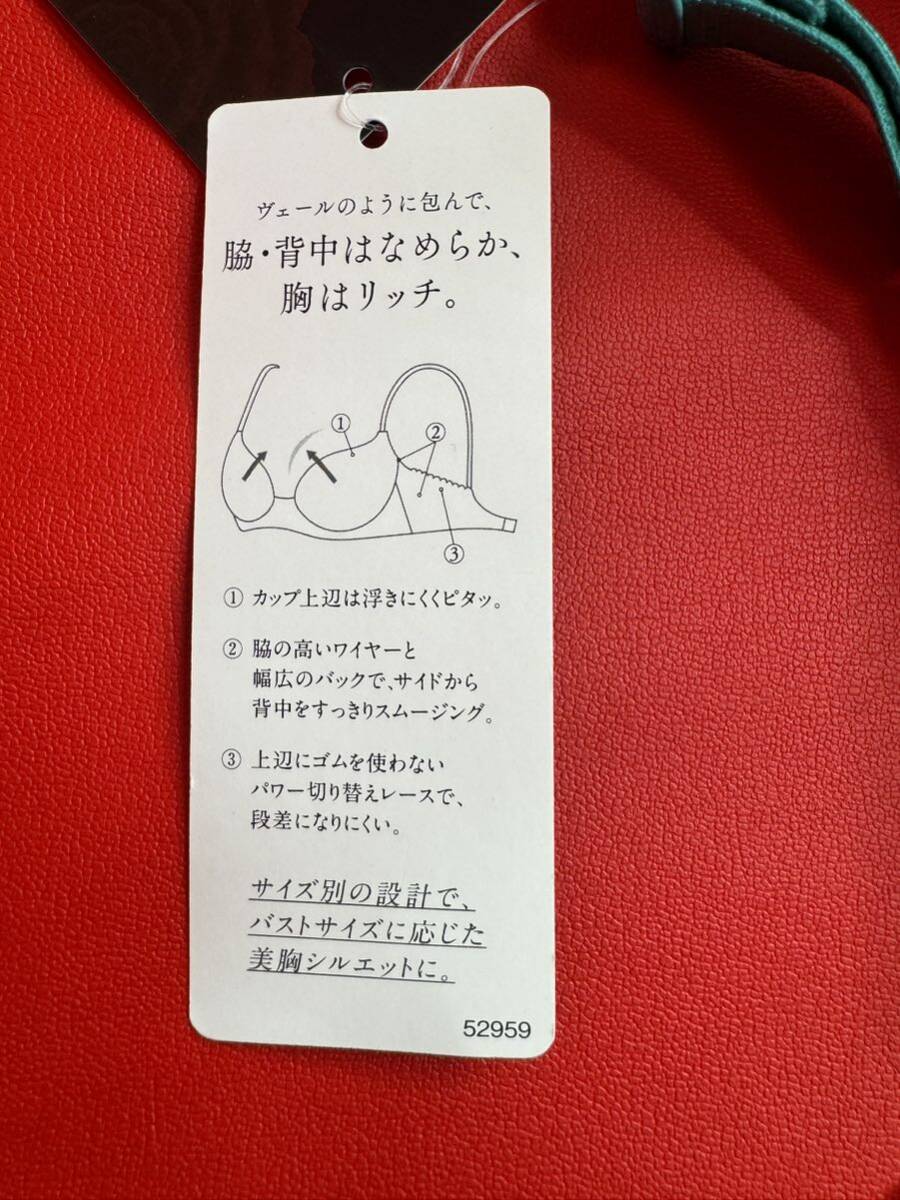 ヴェールのように包んで、
脇・背中はなめらか、
胸はリッチ。
①
②
③
① カップ上辺は浮きにくくピタッ。
② 脇の高いワイヤーと
幅広のバックで、サイドから
背中をすっきりスムージング。
③ 上辺にゴムを使わない
パワー切り替えレースで、
段差になりにくい。
サイズ別の設計で、
バストサイズに応じた
美胸シルエットに。
52959